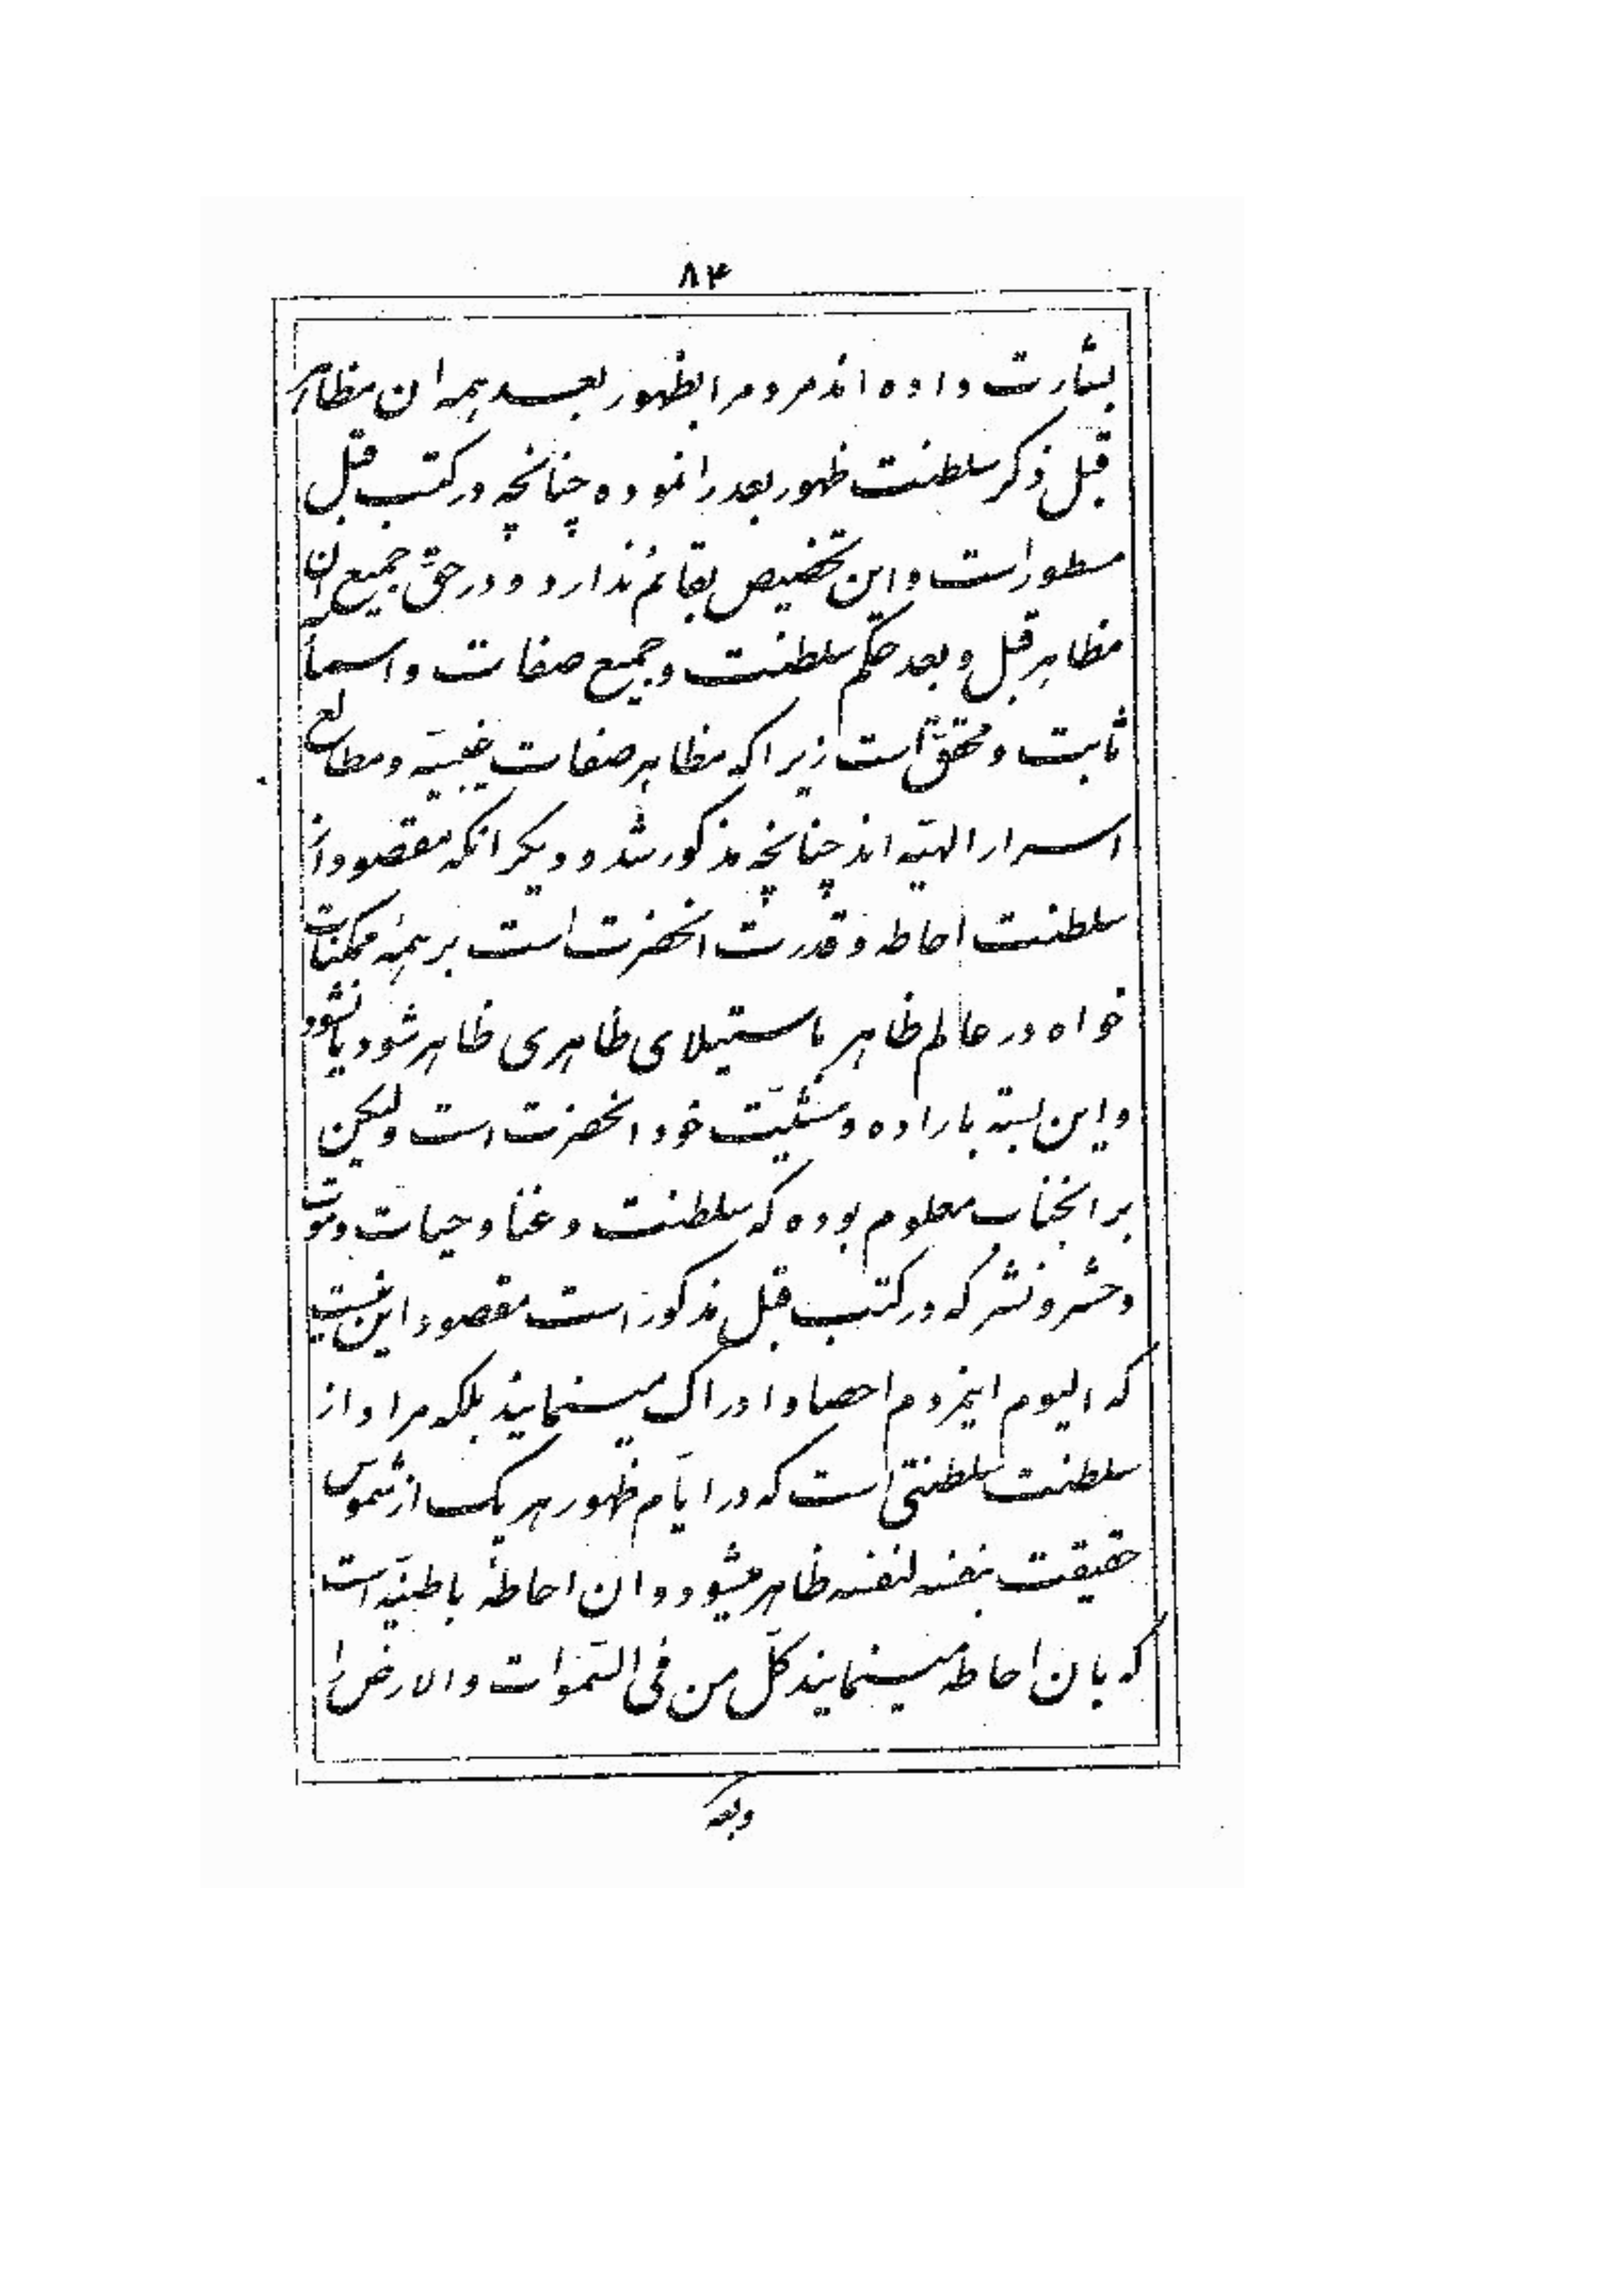 ٨٣
بشارت داده اند مردم را بظهور بعد همه ان مظاهر
قبل ذکر سلطنت ظهور بعد را نموده چنانچه در کتب قبل
مسطور است و این تخصیص بقائم ندارد و در حق جمیع ان
مظاهر قبل و بعد حکم سلطنت و جمیع صفات و اسمأ
ثابت و محقق است زیرا که مظاهر صفات غیبیّه و مطالع
اسرار الهیّه اند چنانچه مذکور شد و دیکر انکه مقصود از
سلطنت احاطه و قدرت انحضرت است بر همهٔ ممکنات
خواه در عالم ظاهر باستیلای ظاهری ظاهر شود یا نشود
و این بسته باراده و مشیّت خود انحضرت است ولیکن
بر انجناب معلوم بوده که سلطنت و غنا و حیات و موت
و حشر و نشر که در کتب قبل مذکور است مقصود این نیست
که الیوم اینمردم احصا و ادراک مینمایند بلکه مراد از
سلطنت سلطنتی است که در ایّام ظهور هر یک از شموس
حقیقت بنفسه لنفسه ظاهر میشود و ان احاطهٔ باطنیّه است
که بان احاطه مینمایند کلّ من فی السّموات والارض را
و بعد